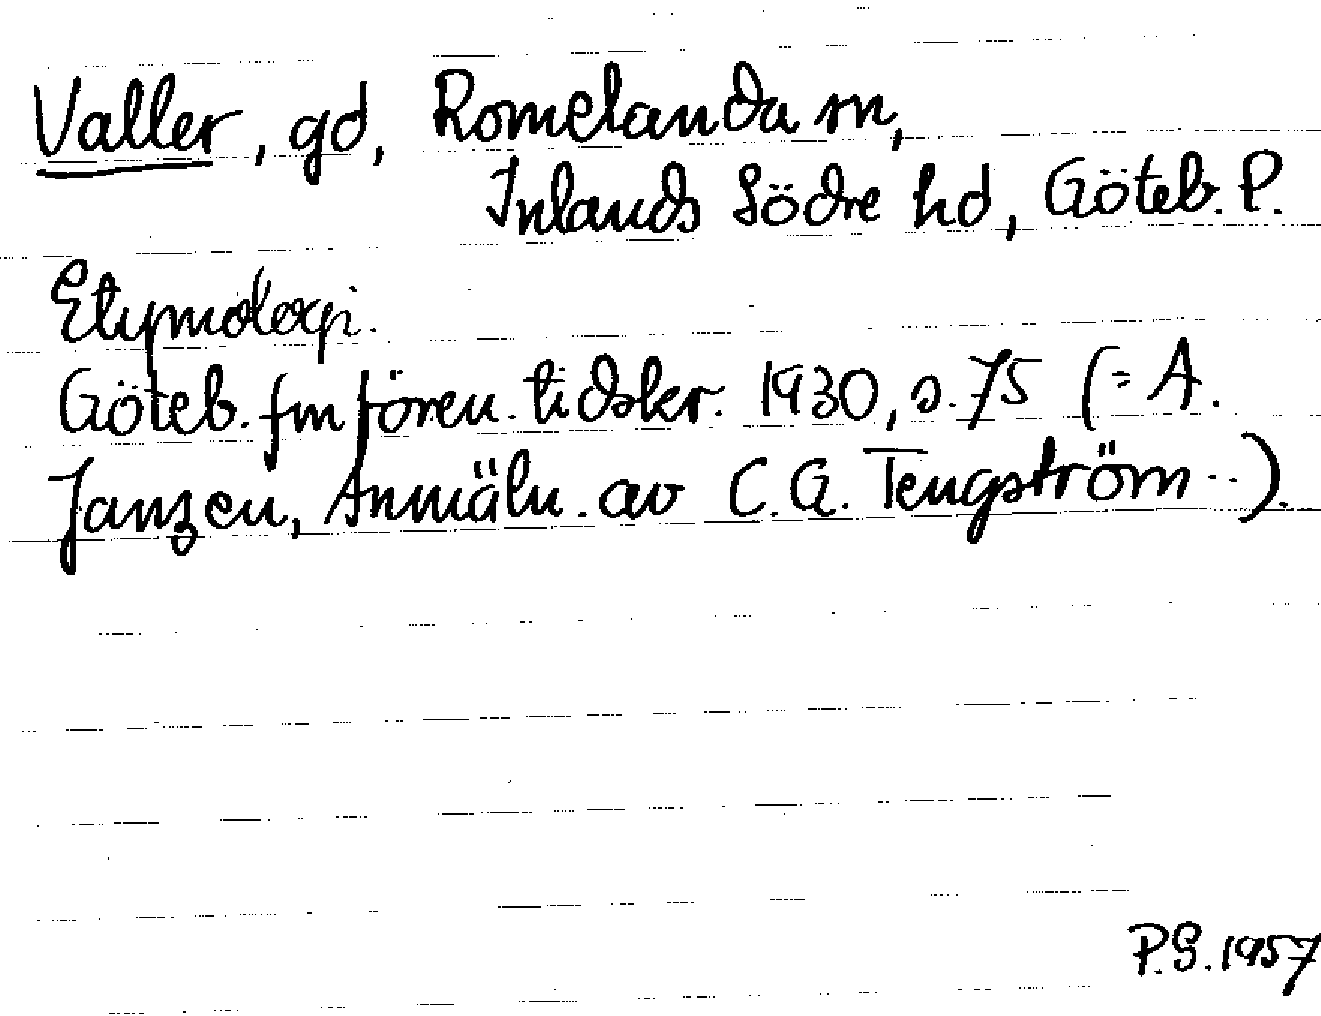 Valler, gd, Romelanda sn,
Inlands Södre hd, Göteb. P.
Etymologi.
Göteb. fm fören. tidskr. 1930, s. 75 (= A.
Janzen, Anmäln. av C. G. Tengström ..).
P.S. 1957